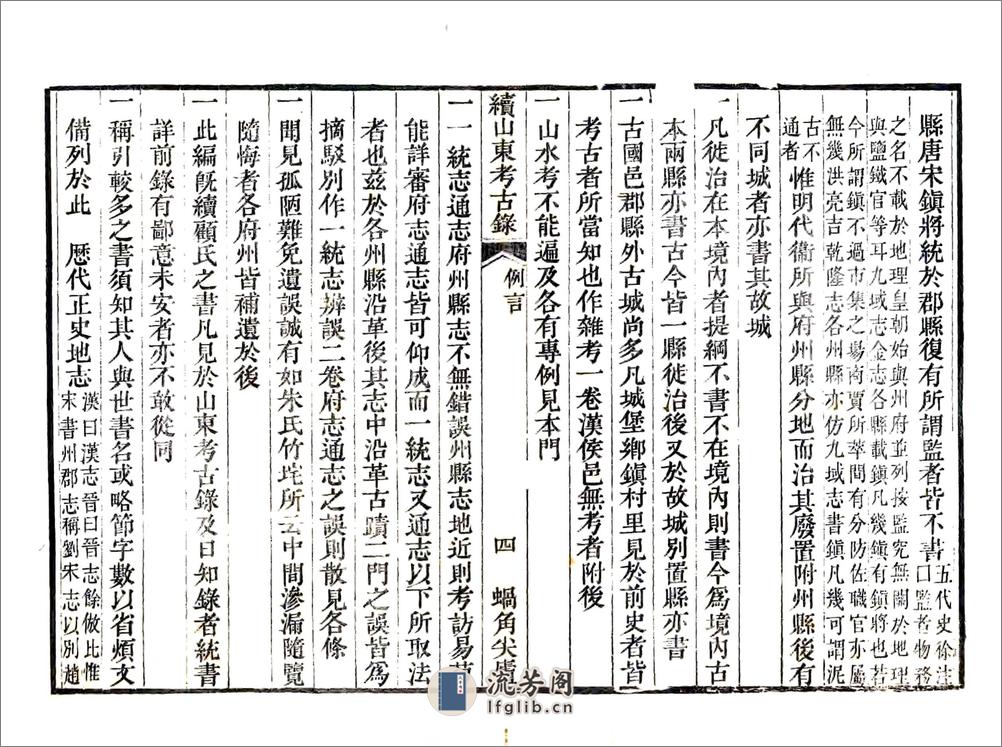 縣唐宋鎭將統於郡縣復有所謂監者皆不書五代史徐注
口監者物務
之名不載於地理皇朝始與州府並列按監究無關於地理
與鹽鐵官等耳九域志金志各縣載鎭凡幾鎭有鎭將也若
今所謂鎭不過市集之場商賈所萃間有分防佐職官亦屬
無幾洪亮吉乾隆志各州縣亦仿九域志書鎭凡幾可謂泥
古不通者
惟明代衞所與府州縣分地而治其廢置附州縣後有
不同城者亦書其故城
一凡徙治在本境內者提綱不書不在境內則書今爲境內古
本兩縣亦書古今皆一縣徙治後又於故城別置縣亦書
一古國邑郡縣外古城尚多凡城堡鄉鎭村里見於前史者皆
考古者所當知也作雜考一卷漢侯邑無考者附後
一山水考不能遍及各有專例見本門
續山東考古錄 例言 四 蝸角尖廬
一一統志通志府州縣志不無錯誤州縣志地近則考訪易
能詳審府志通志皆可仰成而一統志又通志以下所取法
者也茲於各州縣沿革後其志中沿革古蹟二門之誤皆爲
摘駁別作一統志辨誤二卷府志通志之誤則散見各條
一聞見孤陋難免遺誤誠有如朱氏竹垞所云中間滲漏隨覽
隨悔者各府州皆補遺於後
一此編旣續顧氏之書凡見於山東考古錄及日知錄者統書
詳前錄有鄙意未安者亦不敢從同
一稱引較多之書須知其人與世書名或略節字數以省煩文
備列於此 歷代正史地志漢曰漢志晉曰晉志餘倣此惟
宋書州郡志稱劉宋志以別趙
流芳阁
lfglib.cn